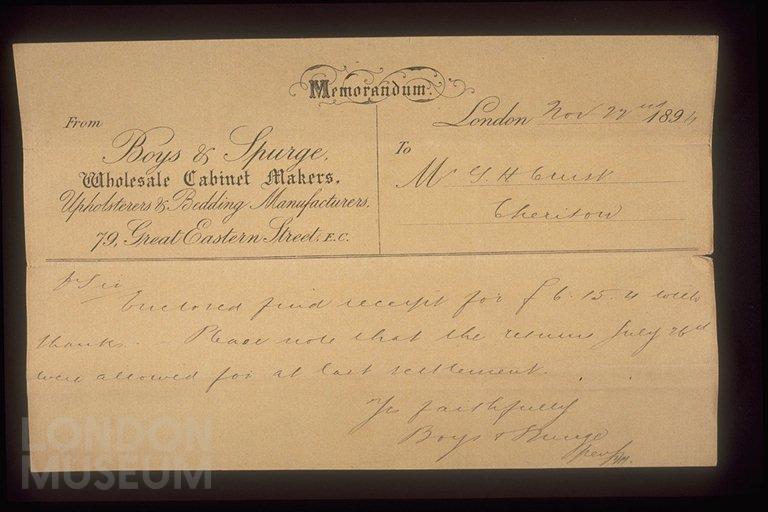 Memorandum.
From
Boys & Spurge,
Wholesale Cabinet Makers,
Upholsterers & Bedding Manufacturers.
79, Great Eastern Street, E.C.
London Nov 22nd 1894
To
Mr G. H
Cheriton
Sir
Enclosed find receipt for £6.15.4 with
thanks. Please note that the returns July 26th
were allowed for at last settlement.
Yrs faithfully
Boys & Spurge
LONDON
MUSEUM